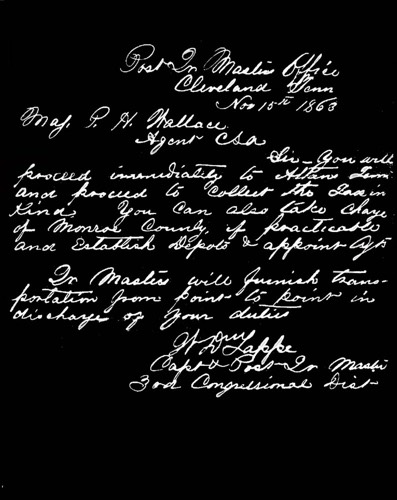 Post Qr Masters Office
Cleveland Tenn
Nov 15th 1863
Maj. P. H. Wallace
Agent CSA
Sir - You will
proceed immediately to Athens Tenn
and proceed to collect the Tax in
Kind. You can also take charge
of Monroe County, if practicable
and Establish Depots & appoint Agts
Qr Masters will furnish trans-
portation from point to point in
discharge of your duties
Capt & Post Qr Master
3rd Congressional Dist